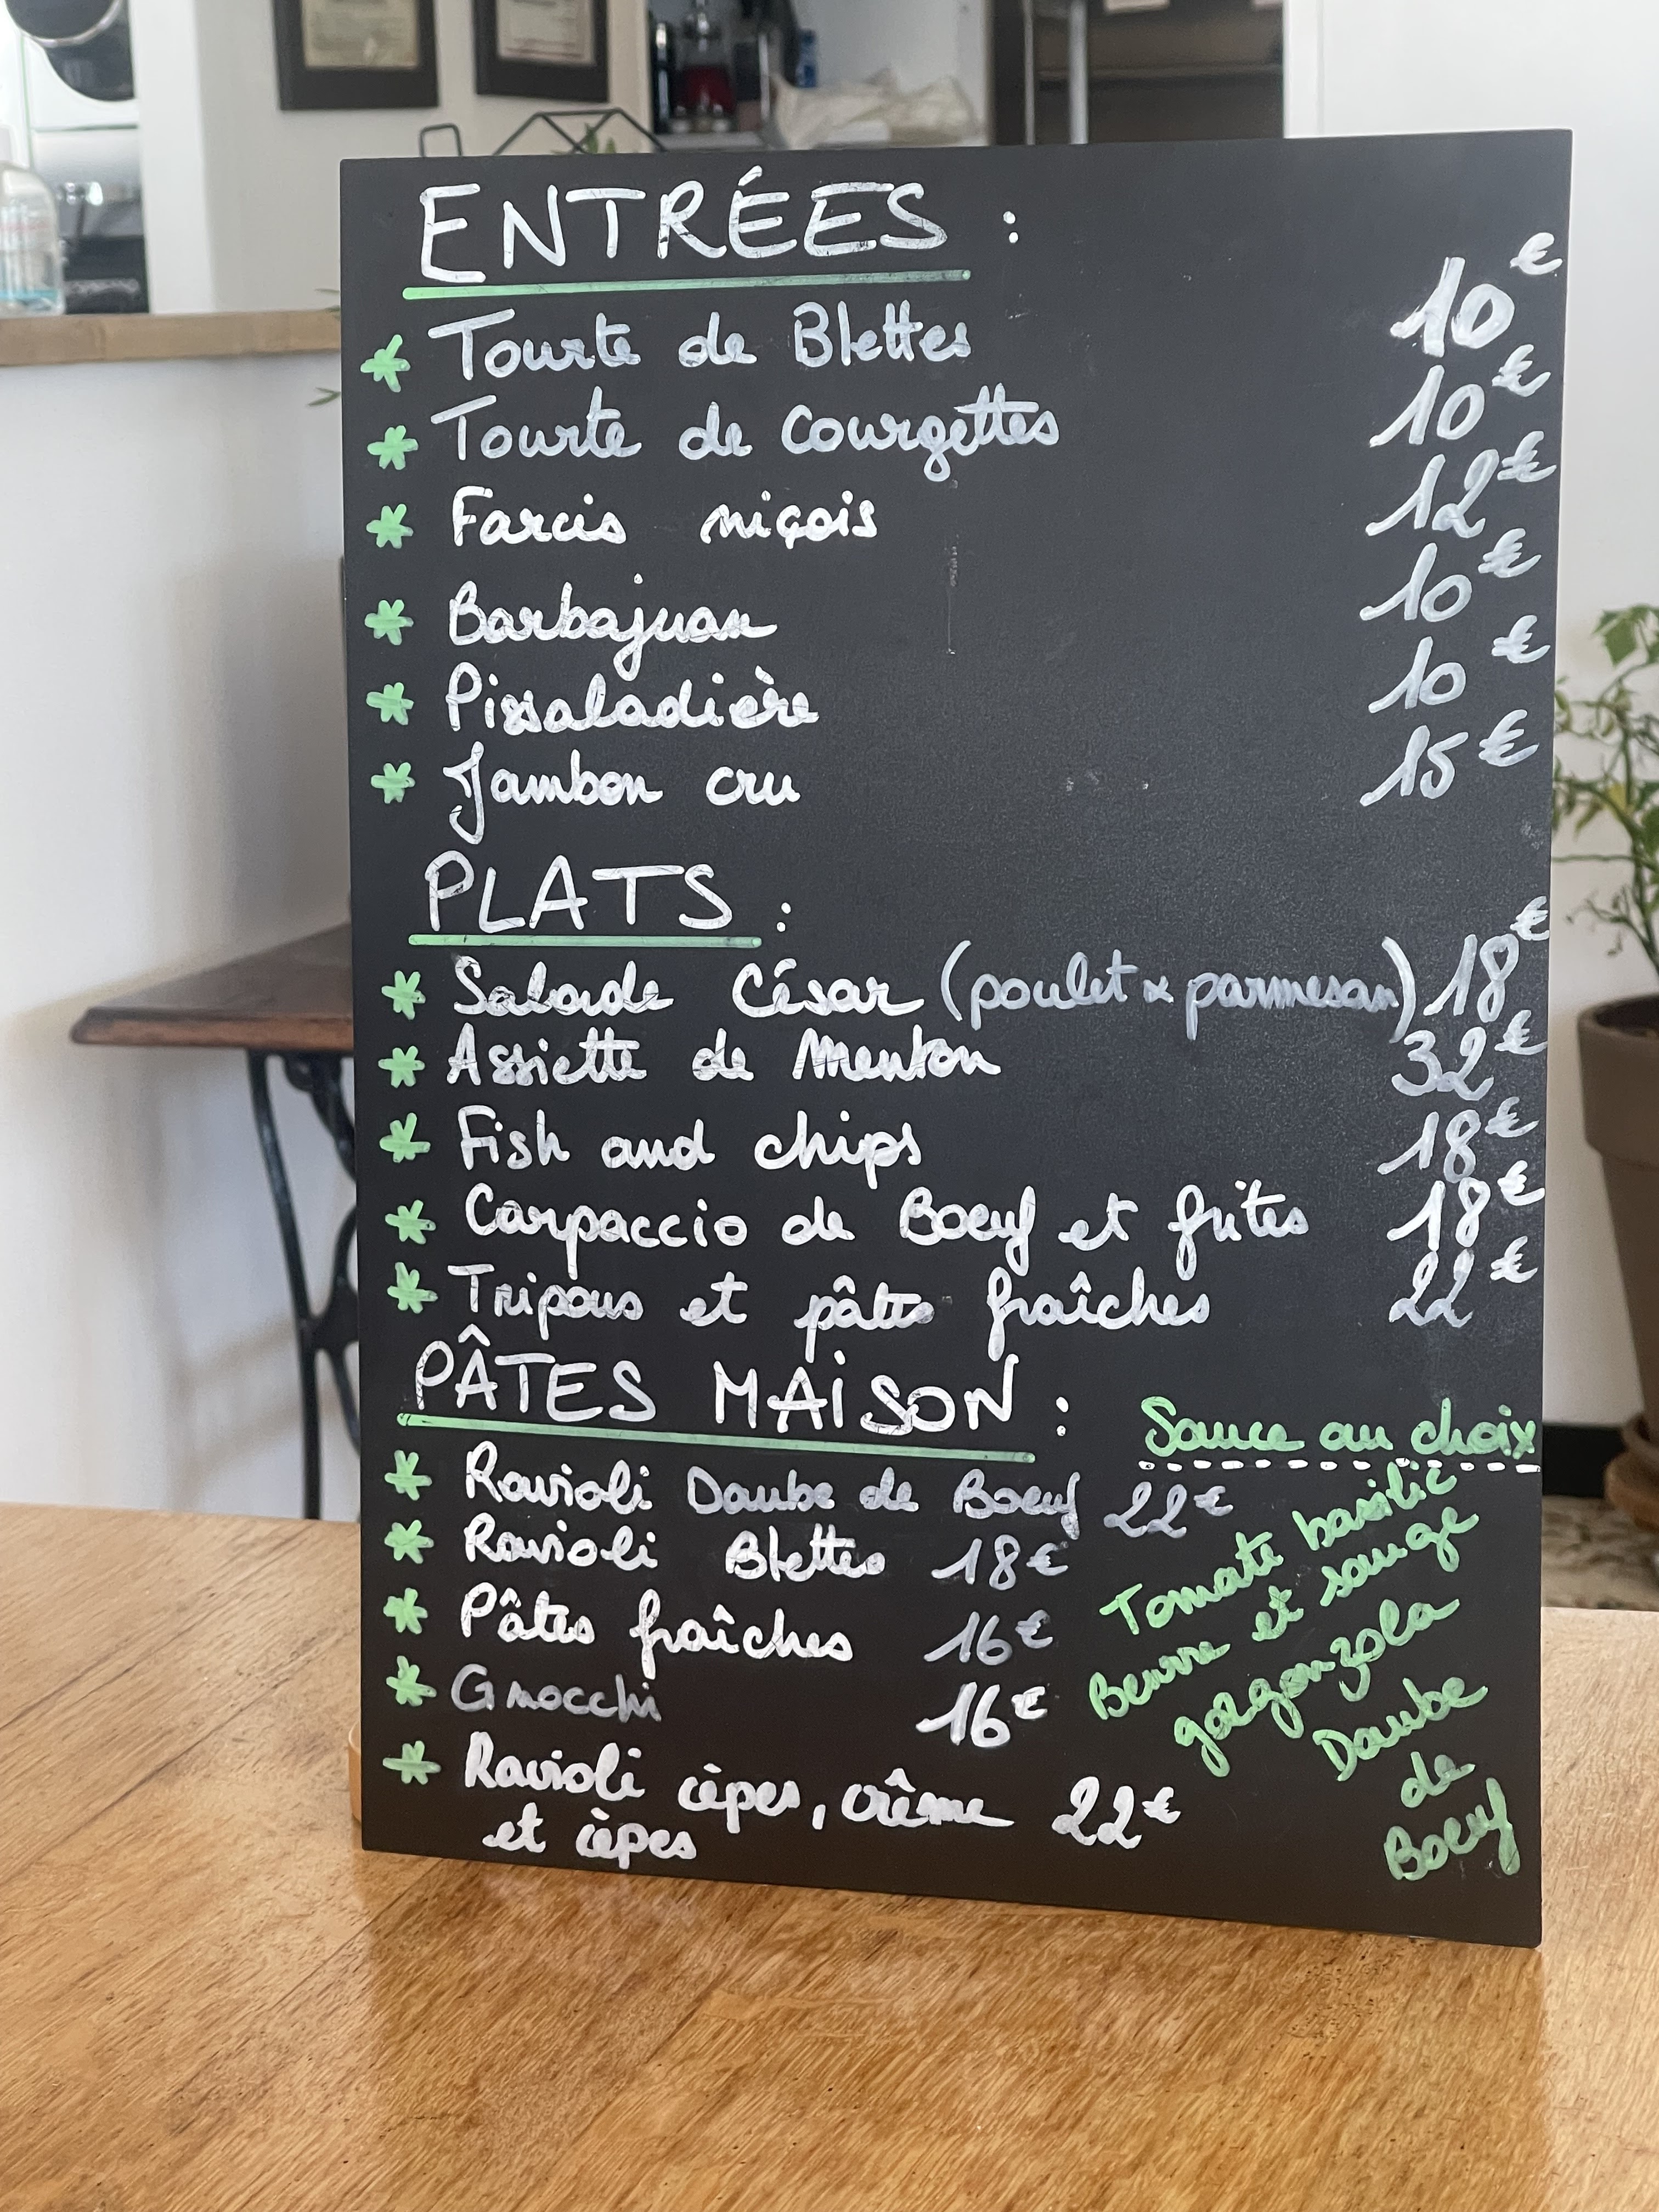 ENTRÉES :
* Tourte de Blettes 10€
* Tourte de Courgettes 10€
* Farcis niçois 12€
* Barbajuan 10€
* Pissaladière 10€
* Jambon cru 15€
PLATS :
* Salade César (poulet & parmesan) 18€
* Assiette de Menton 32€
* Fish and chips 18€
* Carpaccio de Boeuf et frites 18€
* Tripous et pâtes fraîches 22€
PÂTES MAISON :
* Ravioli Daube de Boeuf 22€
* Ravioli Blettes 18€
* Pâtes fraîches 16€
* Gnocchi 16€
* Ravioli cèpes, crême 22€
et cèpes
Sauce au choix
Tomate basilic
Beurre et sauge
gorgonzola
Daube
de
Boeuf